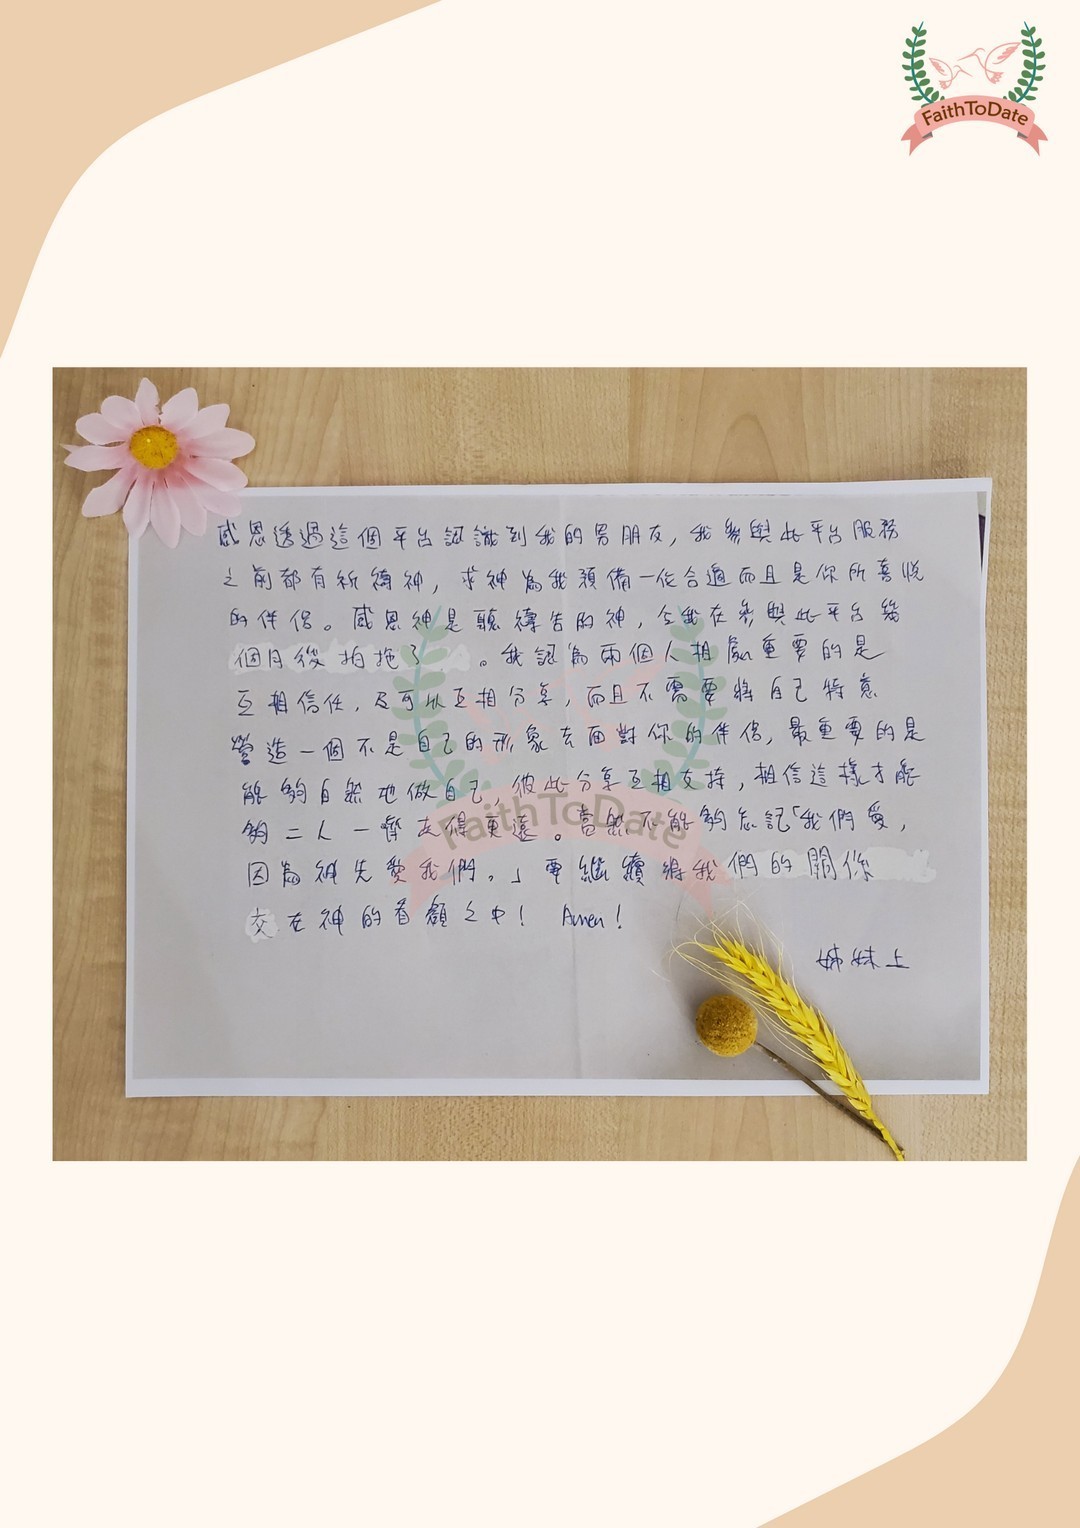 FaithToDate
感恩透過這個平台認識到我的男朋友,我參與此平台服務
之前都有祈禱神,求神為我預備一位合適而且是你所喜悅
的伴侶。感恩神是聽禱告的神,令我在參與此平台幾
個月後拍拖了。我認為兩個人相處重要的是
互相信任,及可以互相分享,而且不需要將自己特意
營造一個不是自己的形象去面對你的伴侶,最重要的是
能夠自然地做自己,彼此分享互相支持,相信這樣才能
夠二人一齊走得更遠。當然不能夠忘記「我們愛,
因為神先愛我們。」要繼續將我們的關係
交在神的看顧之中! Amen!
姊妹上
FaithToDate